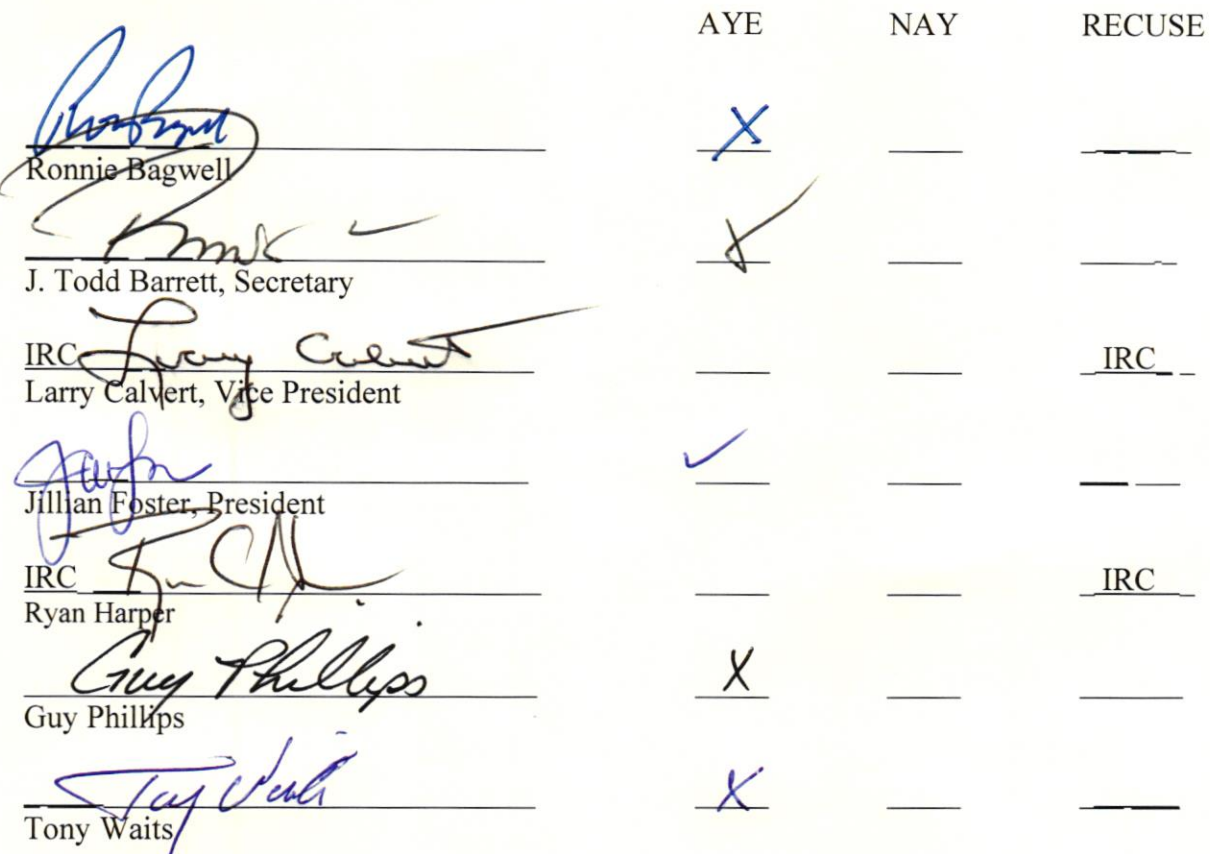 AYE NAY RECUSE
X
Ronnie Bagwell
X
J. Todd Barrett, Secretary
IRC Larry Calvert IRC
Larry Calvert, Vice President
✓
Jillian Foster, President
IRC IRC
Ryan Harper
Guy Phillips X
Guy Phillips
Tony Waits X
Tony Waits